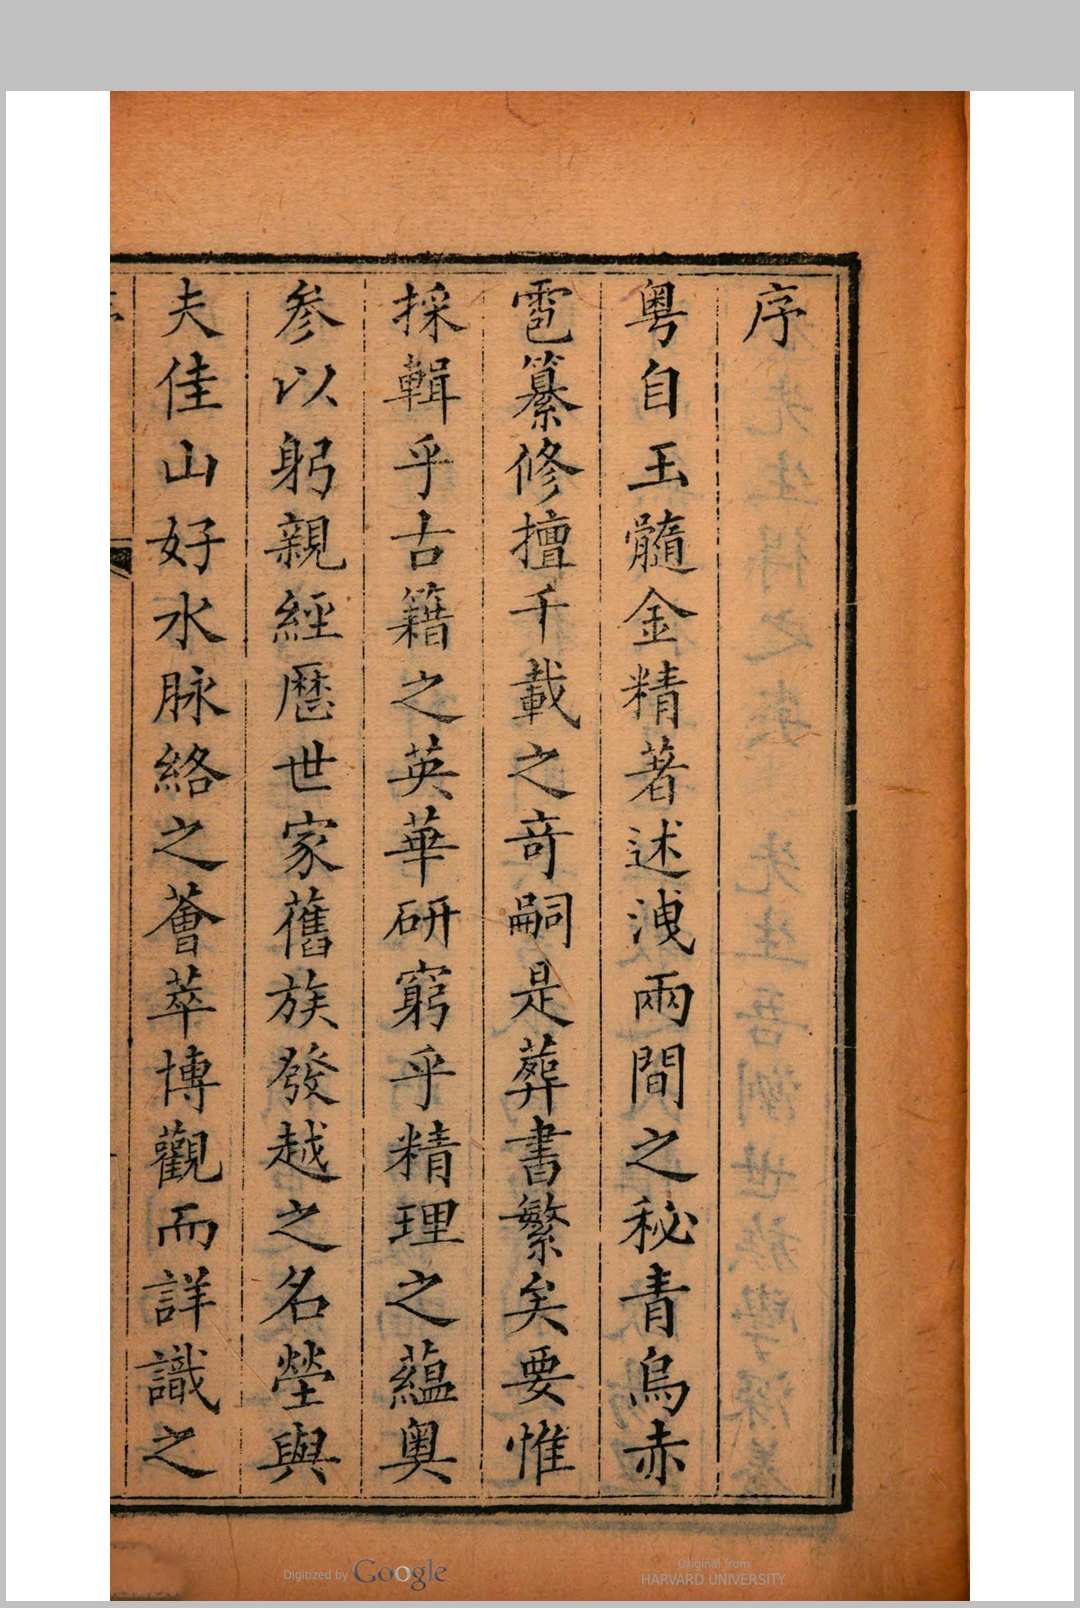 序
粵自玉髓金精著述洩兩間之秘青烏赤
雹纂修擅千載之奇嗣是葬書繁矣要惟
採輯乎古籍之英華研窮乎精理之蘊奧
參以躬親經歷世家舊族發越之名塋與
夫佳山好水脉絡之薈萃博觀而詳識之
Digitized by Google
Original from
HARVARD UNIVERSITY